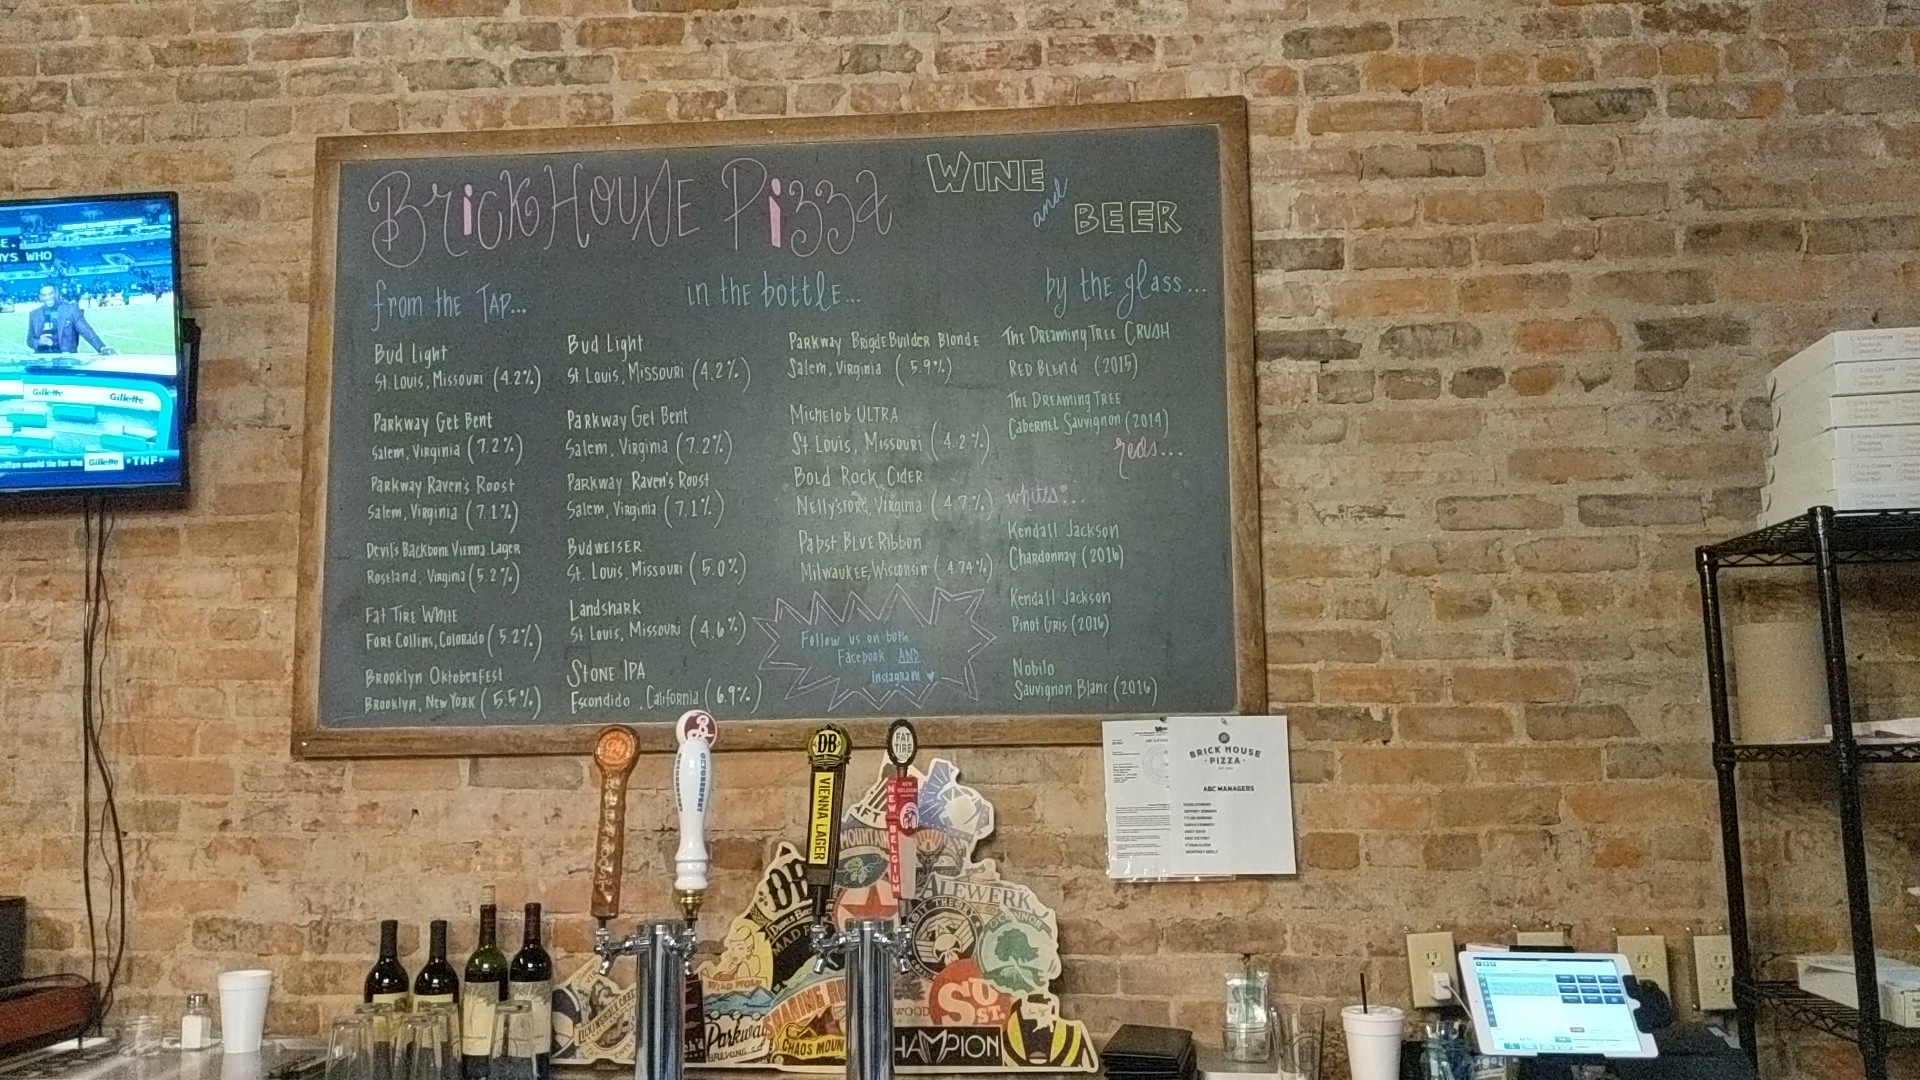 BrickHouse Pizza
WINE
and
BEER
from the TAP...
Bud Light
St. Louis, Missouri (4.2%)
Parkway Get Bent
Salem, Virginia (7.2%)
Parkway Raven's Roost
Salem, Virginia (7.1%)
Devil's Backbone Vienna Lager
Roseland, Virginia (5.2%)
Fat Tire White
Fort Collins, Colorado (5.2%)
Brooklyn Oktoberfest
Brooklyn, New York (5.5%)
in the bottle...
Bud Light
St. Louis, Missouri (4.2%)
Parkway Get Bent
Salem, Virginia (7.2%)
Parkway Raven's Roost
Salem, Virginia (7.1%)
Budweiser
St. Louis, Missouri (5.0%)
Landshark
St Louis, Missouri (4.6%)
Stone IPA
Escondido, California (6.9%)
Parkway BrigdeBuilder Blonde
Salem, Virginia (5.9%)
Michelob ULTRA
St. Louis, Missouri (4.2%)
Bold Rock Cider
Nellysford, Virginia (4.7%)
Pabst Blue Ribbon
Milwaukee, Wisconsin (4.74%)
Follow us on both
Facebook AND
Instagram
by the glass...
The Dreaming Tree CRUSH
Red Blend (2015)
The Dreaming Tree
Cabernet Sauvignon (2014)
reds...
whites...
Kendall Jackson
Chardonnay (2016)
Kendall Jackson
Pinot Gris (2016)
Nobilo
Sauvignon Blanc (2016)
YS WHO
Gillette
Gillette
would tie for the
Gillette
TNF
OCTOBERFEST
DB
VIENNA LAGER
FAT
TIRE
NEW BELGIUM
NEW BELGIUM
MOUNTAIN
DB
ALEWERKS
O'CONNOR
Parkway
BREWING CO
CHAOS MOUN
CHAMPION
BRICK HOUSE
PIZZA
ABC MANAGERS